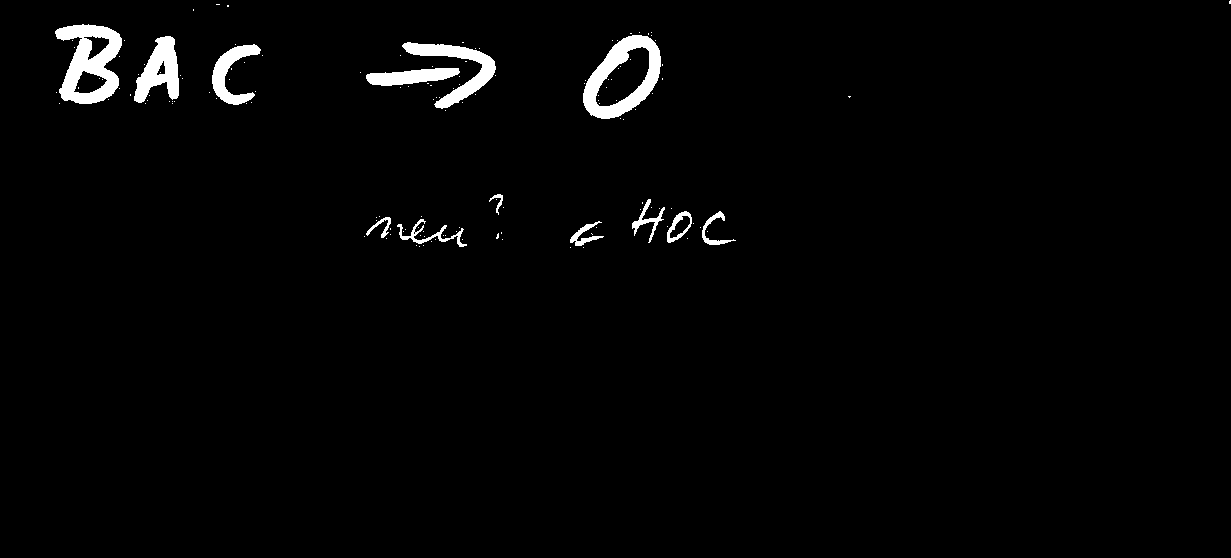 BAC → O
neu? ← HOC